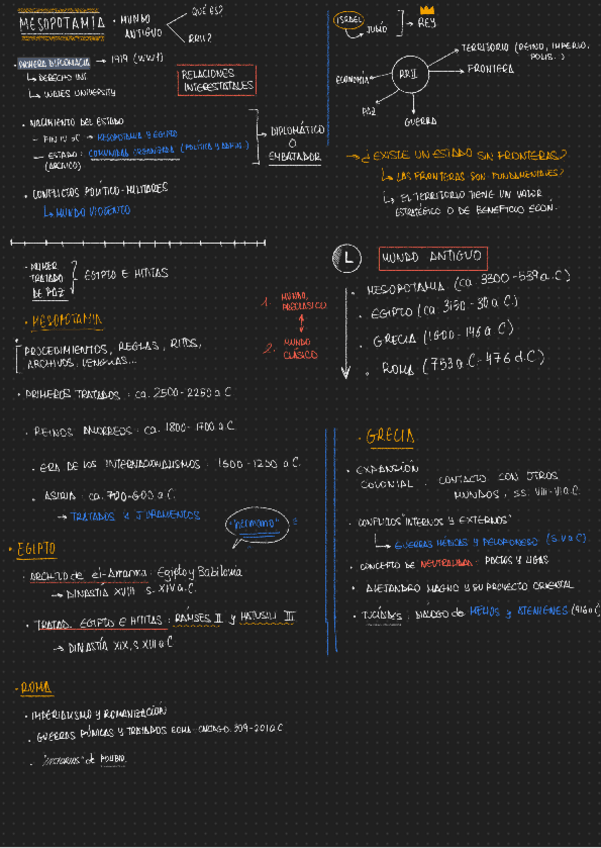 MESOPOTAMIA
· MUNDO ANTIGUO
QUÉ ES?
RRII?
· PRIMERA DIPLOMACIA → 1919 (WW1)
↳ DERECHO INT
↳ WALES UNIVERSITY
RELACIONES
INTERESTATALES
· NACIMIENTO DEL ESTADO
- FIN IV aC → MESOPOTAMIA Y EGIPTO
- ESTADO: COMUNIDAD ORGANIZADA (POLÍTICA Y ADMIN.)
(ARCAICO)
→ DIPLOMÁTICO
O
EMBAJADOR
· CONFLICTOS POLÍTICO-MILITARES
↳ MUNDO VIOLENTO
ISRAEL
↳ JUDÍO
→ REY
RRII
→ TERRITORIO (REINO, IMPERIO,
POLIS..)
→ FRONTERA
ECONOMÍA
PAZ
GUERRA
→ ¿EXISTE UN ESTADO SIN FRONTERAS?
↳ LAS FRONTERAS SON FUNDAMENTALES?
↳ EL TERRITORIO TIENE UN VALOR
ESTRATÉGICO O DE BENEFICIO ECON.
· PRIMER
TRATADO
DE PAZ
EGIPTO E HITITAS
· MESOPOTAMIA
PROCEDIMIENTOS, REGLAS, RITOS,
ARCHIVOS, LENGUAS...
· PRIMEROS TRATADOS: ca. 2500-2250 a.C
· REINOS AMORREOS: ca. 1800-1700 a.C.
· ERA DE LOS INTERNACIONALISMOS: 1500-1200 a.C.
· ASIRIA: ca. 700-600 a.C.
→ TRATADOS Y JURAMENTOS
"hermano"
1. MUNDO
PRECLÁSICO
2. MUNDO
CLÁSICO
L
MUNDO ANTIGUO
· MESOPOTAMIA (ca 3300-539 a.C)
· EGIPTO (ca 3150-30 a.C)
· GRECIA (1600-146 a.C)
· ROMA (753 a.C-476 d.C)
· EGIPTO
· ARCHIVO de el-Amarna: Egipto y Babilonia
→ DINASTÍA XVIII s. XIV a.C.
· TRATADO EGIPTO E HITITAS: RAMSES II y HATUSILI III
→ DINASTÍA XIX, s. XIII a.C
· GRECIA
· EXPANSIÓN
COLONIAL: CONTACTO CON OTROS
MUNDOS, ss. VIII-VI a.C.
· CONFLICTOS "INTERNOS Y EXTERNOS"
↳ GUERRAS MEDICAS Y PELOPONESO (s. V a.C)
· CONCEPTO DE NEUTRALIDAD: PACTOS Y LIGAS
· ALEJANDRO MAGNO Y SU PROYECTO ORIENTAL
· TUCÍDIDES: DIÁLOGO de MELIOS y ATENIENSES (416 a.C)
· ROMA
· IMPERIALISMO Y ROMANIZACIÓN
· GUERRAS PÚNICAS Y TRATADOS ROMA-CARTAGO 509-201 a.C
· "HISTORIAS" de POLIBIO